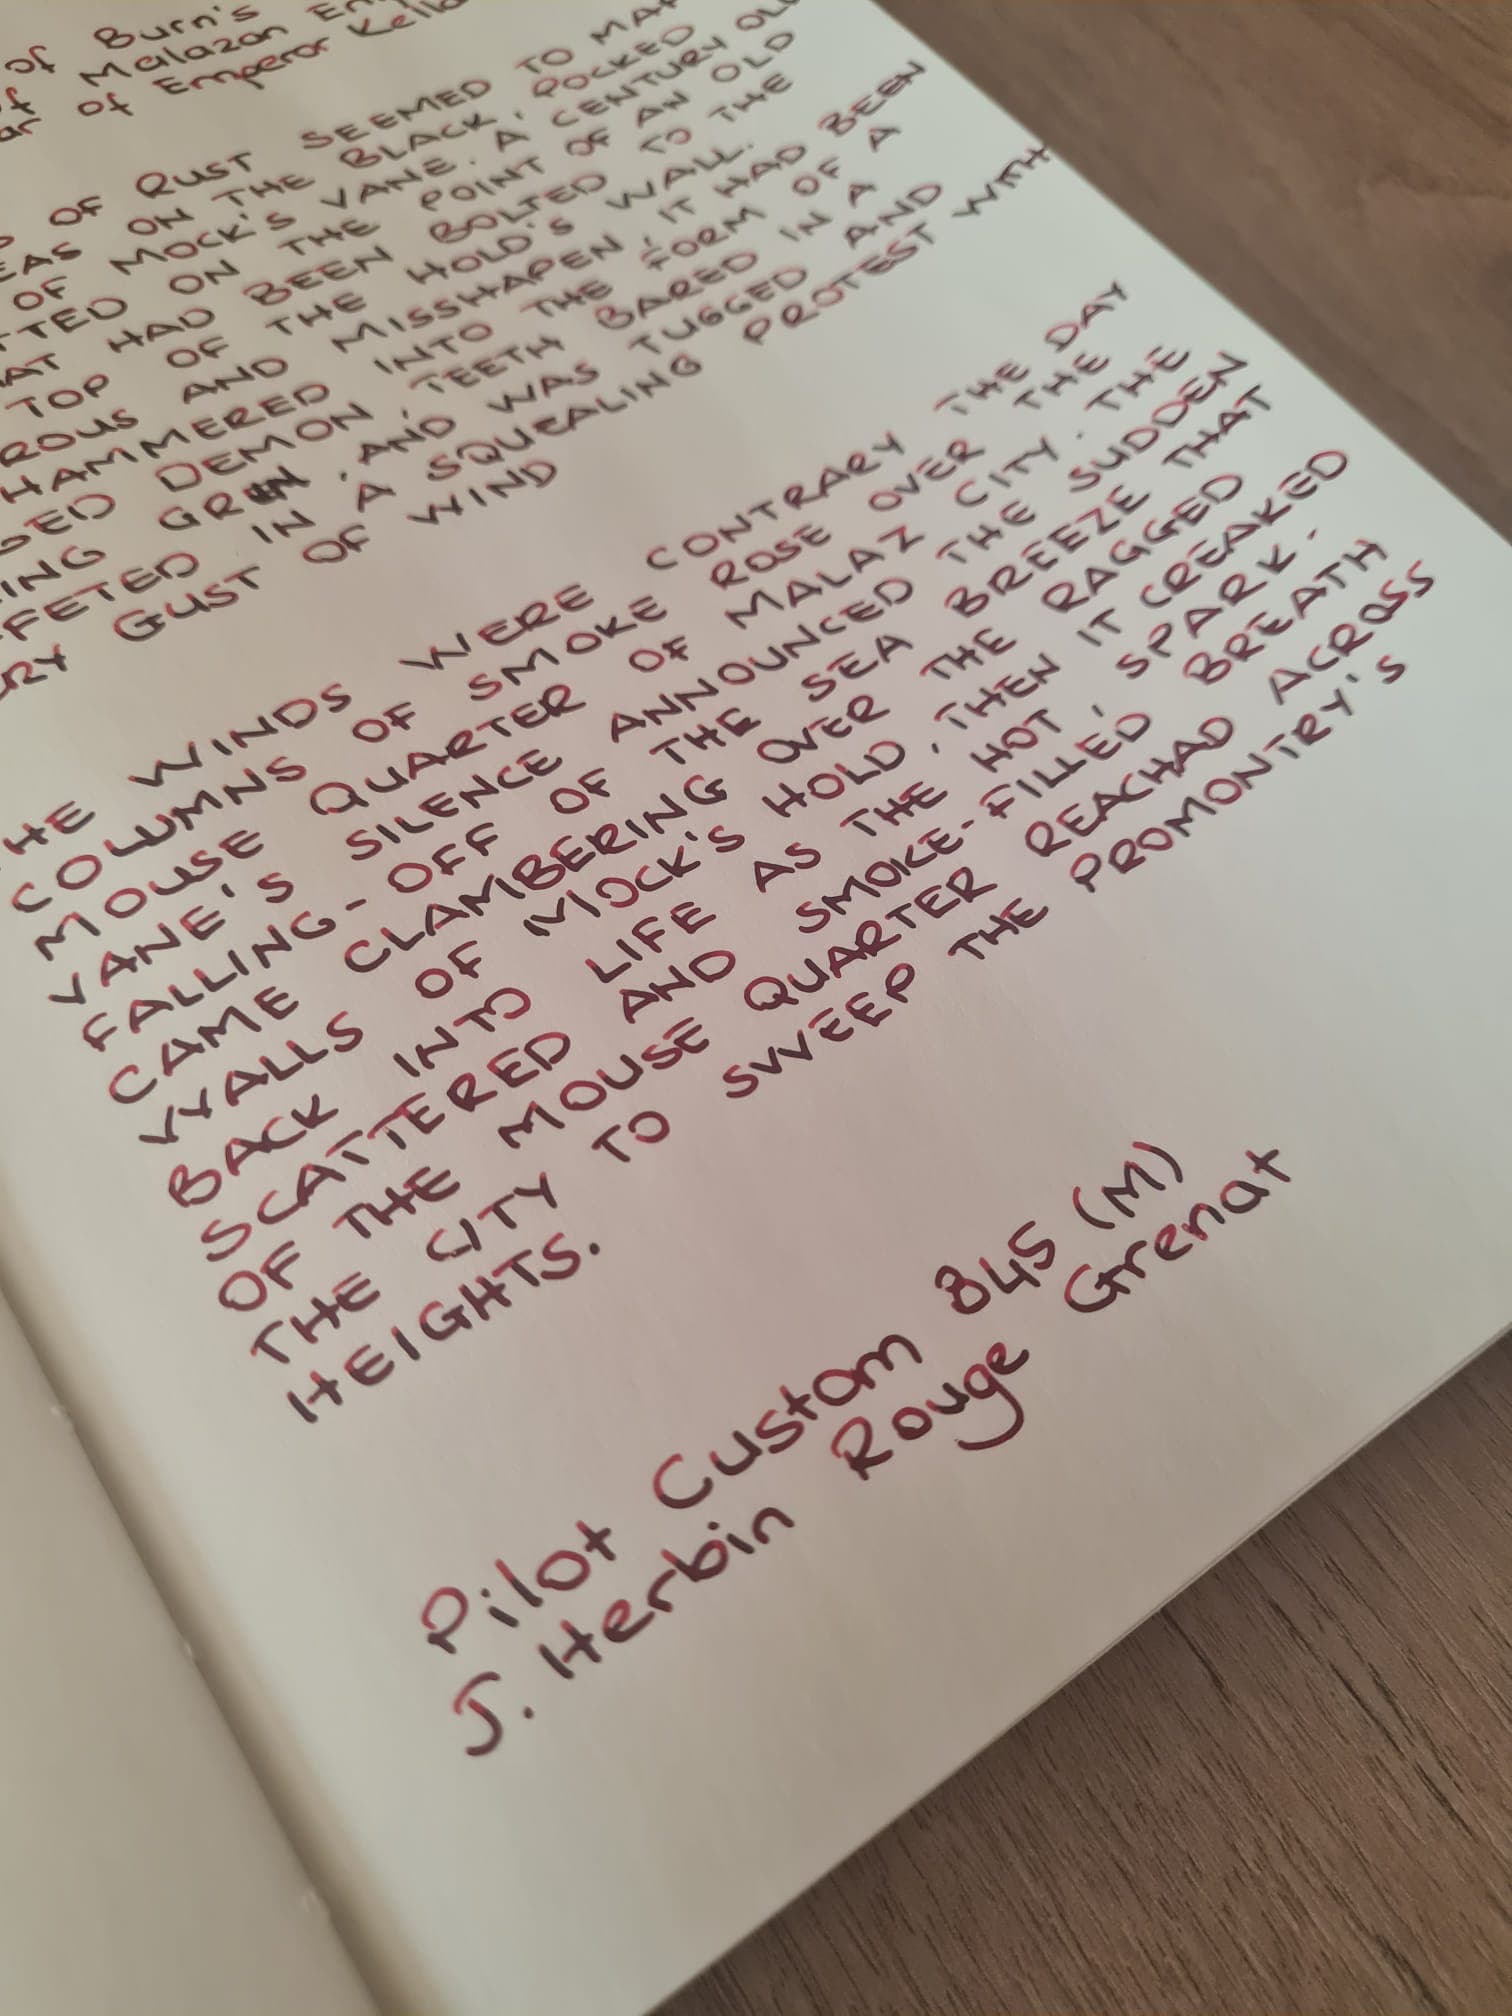 of Burn's
of Malazan
of Emperor Kella
OF RUST SEEMED TO MAP
EAS ON THE BLACK, POCKED
OF MOCK'S VANE. A CENTURY OLD
ON THE POINT OF AN OLD
HAD BEEN BOLTED TO THE
TOP OF THE HOLD'S WALL.
AND MISSHAPEN, IT HAD BEEN
HAMMERED INTO THE FORM OF A
DEMON, TEETH BARED IN A
GRIN, AND WAS TUGGED AND
IN A SQUEALING PROTEST WITH
GUST OF WIND
HE WINDS WERE CONTRARY THE DAY
COLUMNS OF SMOKE ROSE OVER THE
MOUSE QUARTER OF MALAZ CITY. THE
VANE'S SILENCE ANNOUNCED THE SUDDEN
FALLING-OFF OF THE SEA BREEZE THAT
CAME CLAMBERING OVER THE RAGGED
WALLS OF MOCK'S HOLD, THEN IT CREAKED
BACK INTO LIFE AS THE HOT, SPARK-
SCATTERED AND SMOKE-FILLED BREATH
OF THE MOUSE QUARTER REACHAD ACROSS
THE CITY TO SWEEP THE PROMONTRY'S
HEIGHTS.
Pilot Custom 845 (M)
J. Herbin Rouge Grenat